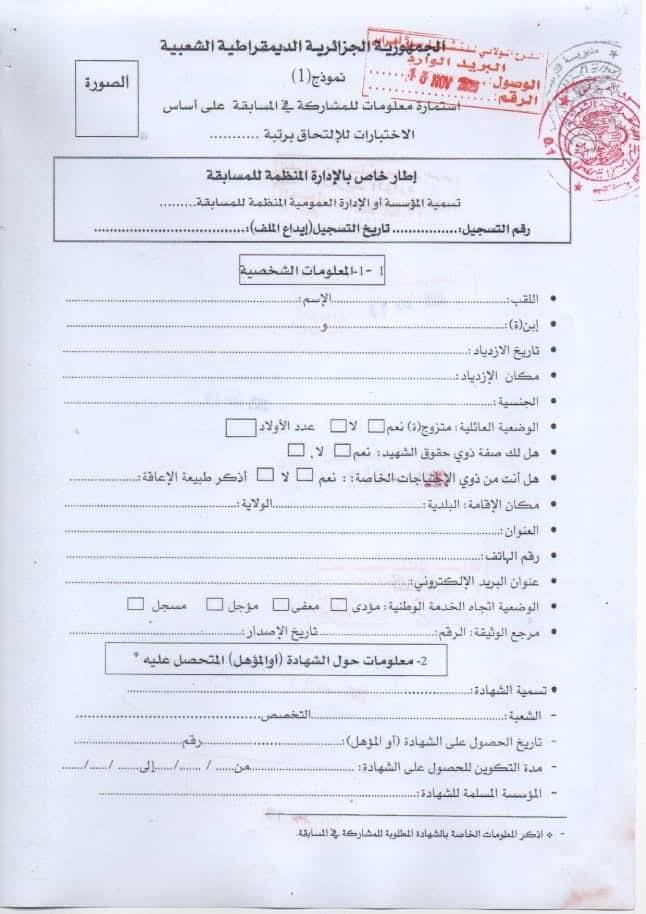 الجمهورية الجزائرية الديمقراطية الشعبية
البريد الوارد
الوصول:
الرقم:
الصورة
نموذج(1)
استمارة معلومات للمشاركة في المسابقة على أساس
الاختبارات للإلتحاق برتبة ..........
إطار خاص بالإدارة المنظمة للمسابقة
تسمية المؤسسة أو الإدارة العمومية المنظمة للمسابقة.........
رقم التسجيل:................ تاريخ التسجيل(إيداع الملف):......................................
1 -1-المعلومات الشخصية
• اللقب:..........................................الإسم:..........................................
• إبن(ة):..........................................و..........................................
• تاريخ الازدياد:..........................................
• مكان الإزدياد:..........................................
• الجنسية:..........................................
• الوضعية العائلية: متزوج(ة) نعم □ لا □ عدد الأولاد □
• هل لك صفة ذوي حقوق الشهيد: نعم □ لا. □
• هل أنت من ذوي الإحتياجات الخاصة: : نعم □ لا □ أذكر طبيعة الإعاقة:....................
• مكان الإقامة: البلدية:..........................................الولاية:..........................................
• العنوان:..........................................
• رقم الهاتف:..........................................
• عنوان البريد الإلكتروني:..........................................
• الوضعية اتجاه الخدمة الوطنية: مؤدى □ معفى □ مؤجل □ مسجل □
• مرجع الوثيقة: الرقم:..............................تاريخ الإصدار:..............................
2- معلومات حول الشهادة (أوالمؤهل) المتحصل عليه *
• تسمية الشهادة:..........................................
- الشعبة:..........................................التخصص..........................................
- تاريخ الحصول على الشهادة (أو المؤهل):..............................رقم..............................
- مدة التكوين للحصول على الشهادة: ..............................من...... / ....../......إلى...... /....../......
- المؤسسة المسلمة للشهادة:..........................................
- * اذكر المعلومات الخاصة بالشهادة المطلوبة للمشاركة في المسابقة.